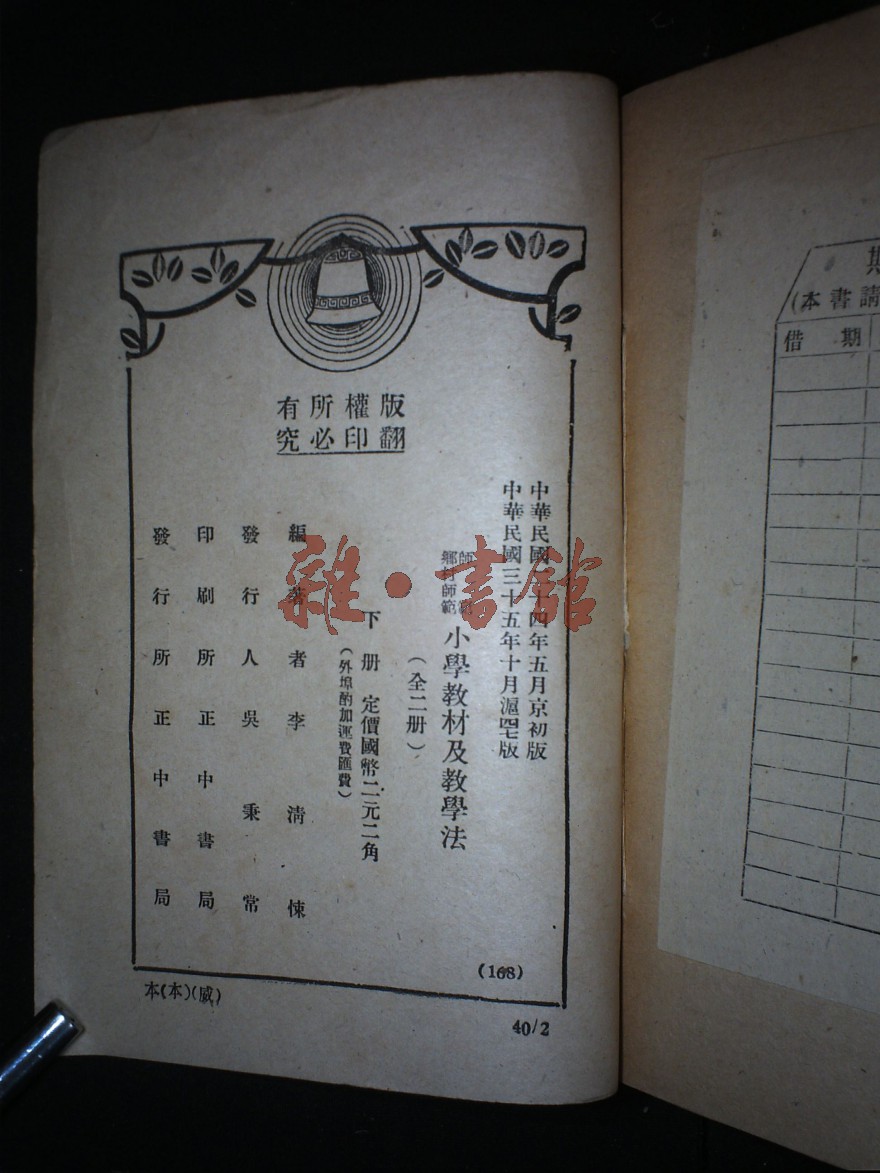 版權所有
翻印必究
中華民國二十四年五月京初版
中華民國三十五年十月滬四七版
師範
鄉村師範
小學教材及教學法
(全二册)
下册 定價國幣二元二角
(外埠酌加運費匯費)
編著者李清悚
發行人吳秉常
印刷所正中書局
發行所正中書局
(168)
本(本)(威)
40/2
雜·書館
期
(本書請
借期